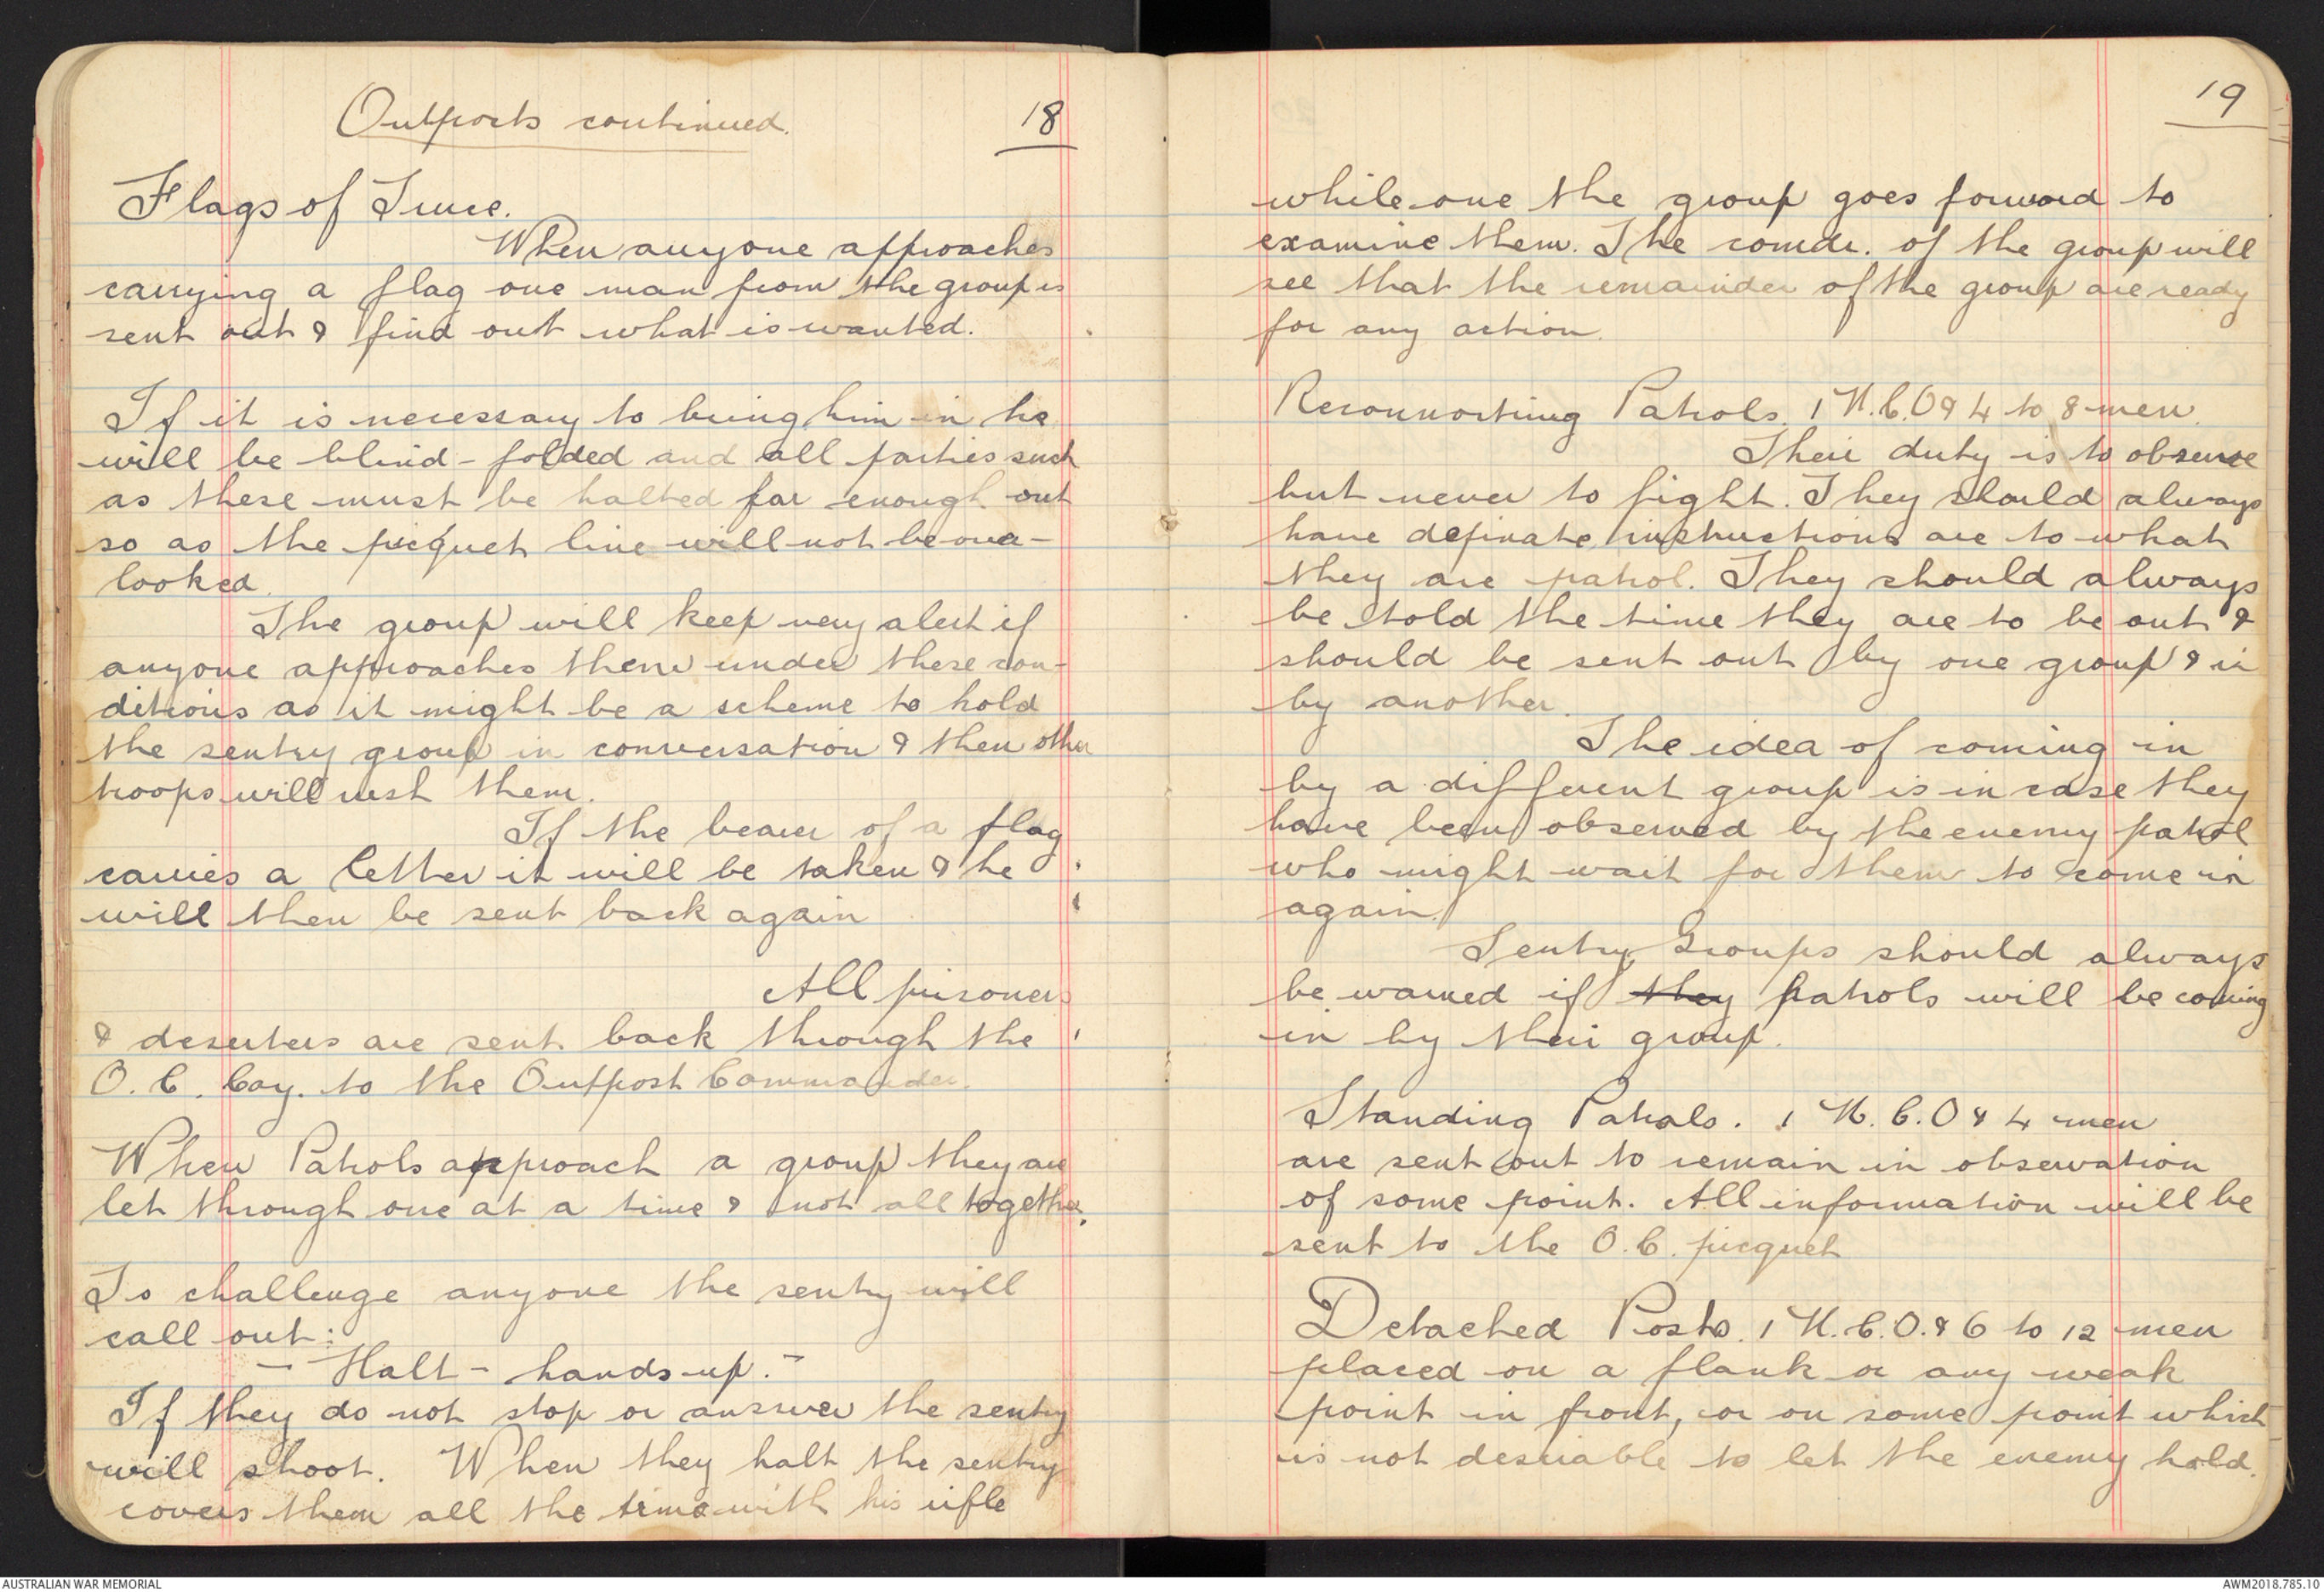 Outposts continued.
18
Flags of Truce.
When anyone approaches
carrying a flag one man from the group is
sent out & find out what is wanted.
If it is necessary to bring him in he
will be blind-folded and all parties such
as these must be halted far enough out
so as the picquet line will not be over-
looked.
The group will keep very alert if
anyone approaches them under these con-
ditions as it might be a scheme to hold
the sentry group in conversation & then other
troops will rush them.
If the bearer of a flag
carries a letter it will be taken & he
will then be sent back again
All prisoners
& deserters are sent back through the
O.C. Coy. to the Outpost Commander.
When Patrols approach a group they are
let through one at a time & not all together.
To challenge anyone the sentry will
call out:
- Halt - hands up. -
If they do not stop or answer the sentry
will shoot. When they halt the sentry
covers them all the time with his rifle
19
while one the group goes forward to
examine them. The comdr. of the group will
see that the remainder of the group are ready
for any action.
Reconnoitring Patrols. 1 N.C.O & 4 to 8 men.
Their duty is to observe
but never to fight. They should always
have definate instructions are to what
they are patrol. They should always
be told the time they are to be out &
should be sent out by one group & in
by another.
The idea of coming in
by a different group is in case they
have been observed by the enemy patrol
who might wait for them to come in
again.
Sentry Groups should always
be warned if they patrols will be coming
in by their group.
Standing Patrols. 1 N.C.O & 4 men
are sent out to remain in observation
of some point. All information will be
sent to the O.C. picquet
Detached Posts. 1 N.C.O. & 6 to 12 men
placed on a flank or any weak
point in front, or on some point which
is not desirable to let the enemy hold.
AUSTRALIAN WAR MEMORIAL
AWM2018.785.10